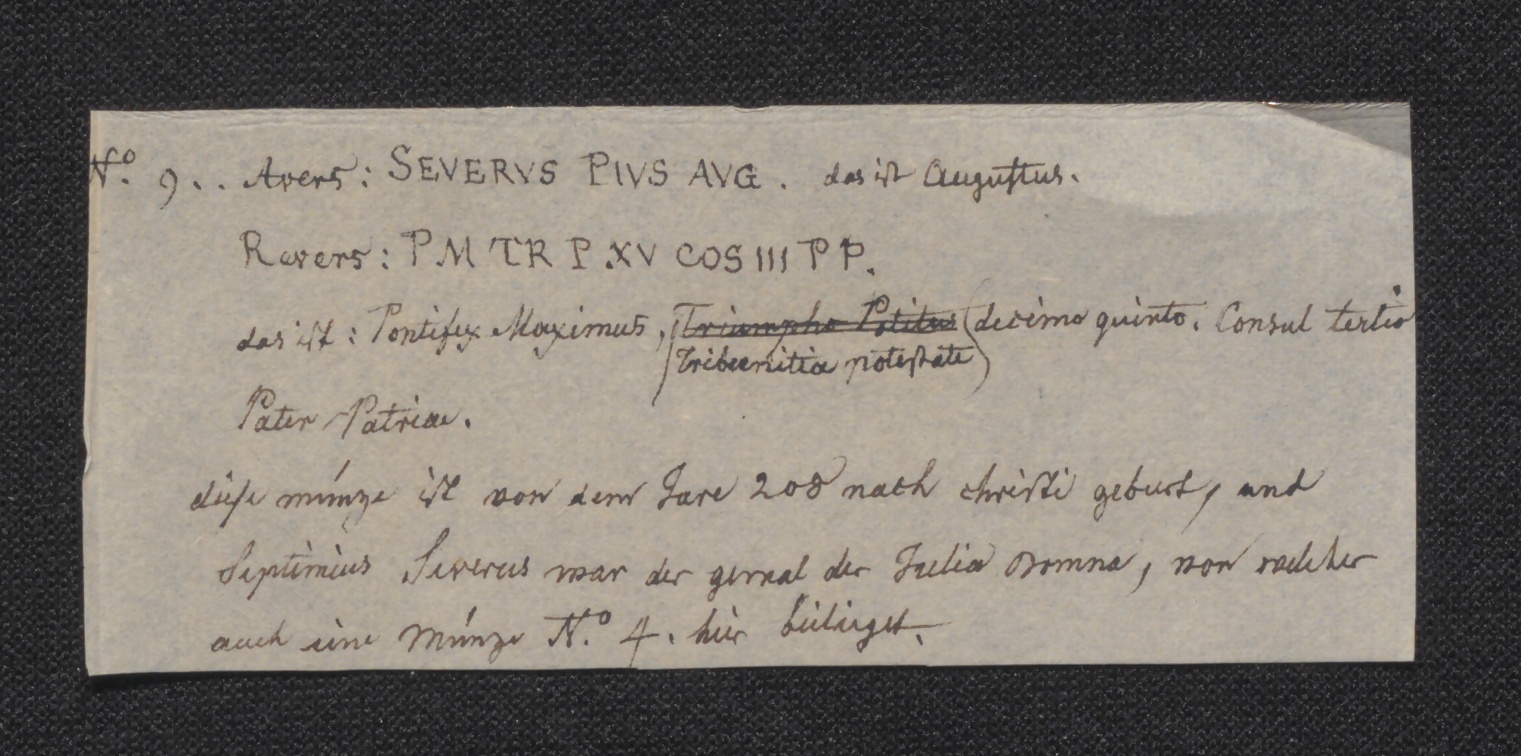 N.º 9.. Avers: SEVERVS PIVS AVG. das ist Augustus.
Revers: P.M TR P. XV COS III P P.
das ist: Pontifex Maximus, (Triumpho Potitus (decimo quinto. Consul tertio
Tribunitia potestate)
Pater Patriae.
diese münze ist von dem Jare 208 nach christi geburt, und
Septimius Severus war der gemal der Julia Domna, von welcher
auch eine Münze N.º 4. hier beiliegt.